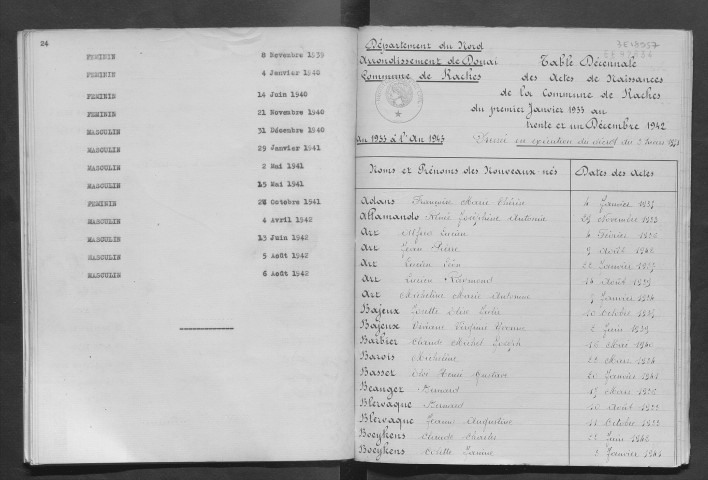 24
FEMININ 8 Novembre 1939
FEMININ 4 Janvier 1940
FEMININ 14 Juin 1940
FEMININ 21 Novembre 1940
MASCULIN 31 Décembre 1940
MASCULIN 29 Janvier 1941
MASCULIN 2 Mai 1941
MASCULIN 15 Mai 1941
FEMININ Octobre 1941
MASCULIN 4 Avril 1942
MASCULIN 13 Juin 1942
MASCULIN 5 Août 1942
MASCULIN 6 Août 1942
Département du Nord
Arrondissement de Douai
Commune de Raches
Table Décennale
des Actes de Naissances
de la Commune de Raches
du premier Janvier 1933 au
trente et un Décembre 1942
an 1933 à l'An 1943
en exécution du décret du
Noms et Prénoms des Nouveaux nés
Dates des Actes
Adans Françoise Marie 4 Janvier 1937
Allamando Joséphine Antonia 29 Novembre 1933
Art Alfred 4 Février 1936
Art Jean Pierre 9 Août 1942
Art Lucien Léon 22 Janvier 1937
Art Lucien Raymond 14 Août
Art Micheline Marie Antoinette 9 Janvier 1934
Bajeux 10 Octobre
Bajeux Juin
Barbier Claude Michel Joseph 16 Mai 1940
Barois Micheline 22 Mars 1934
Basset Henri Gustave 20 Janvier 1941
Beanger Bernard 17 Mars 1936
Blervaque Bernard 10 Août
Blervaque Jeanne Augustine 11 Octobre
Boeykens Claude Charles 22 Juin 1942
Boeykens Colette Janine Janvier